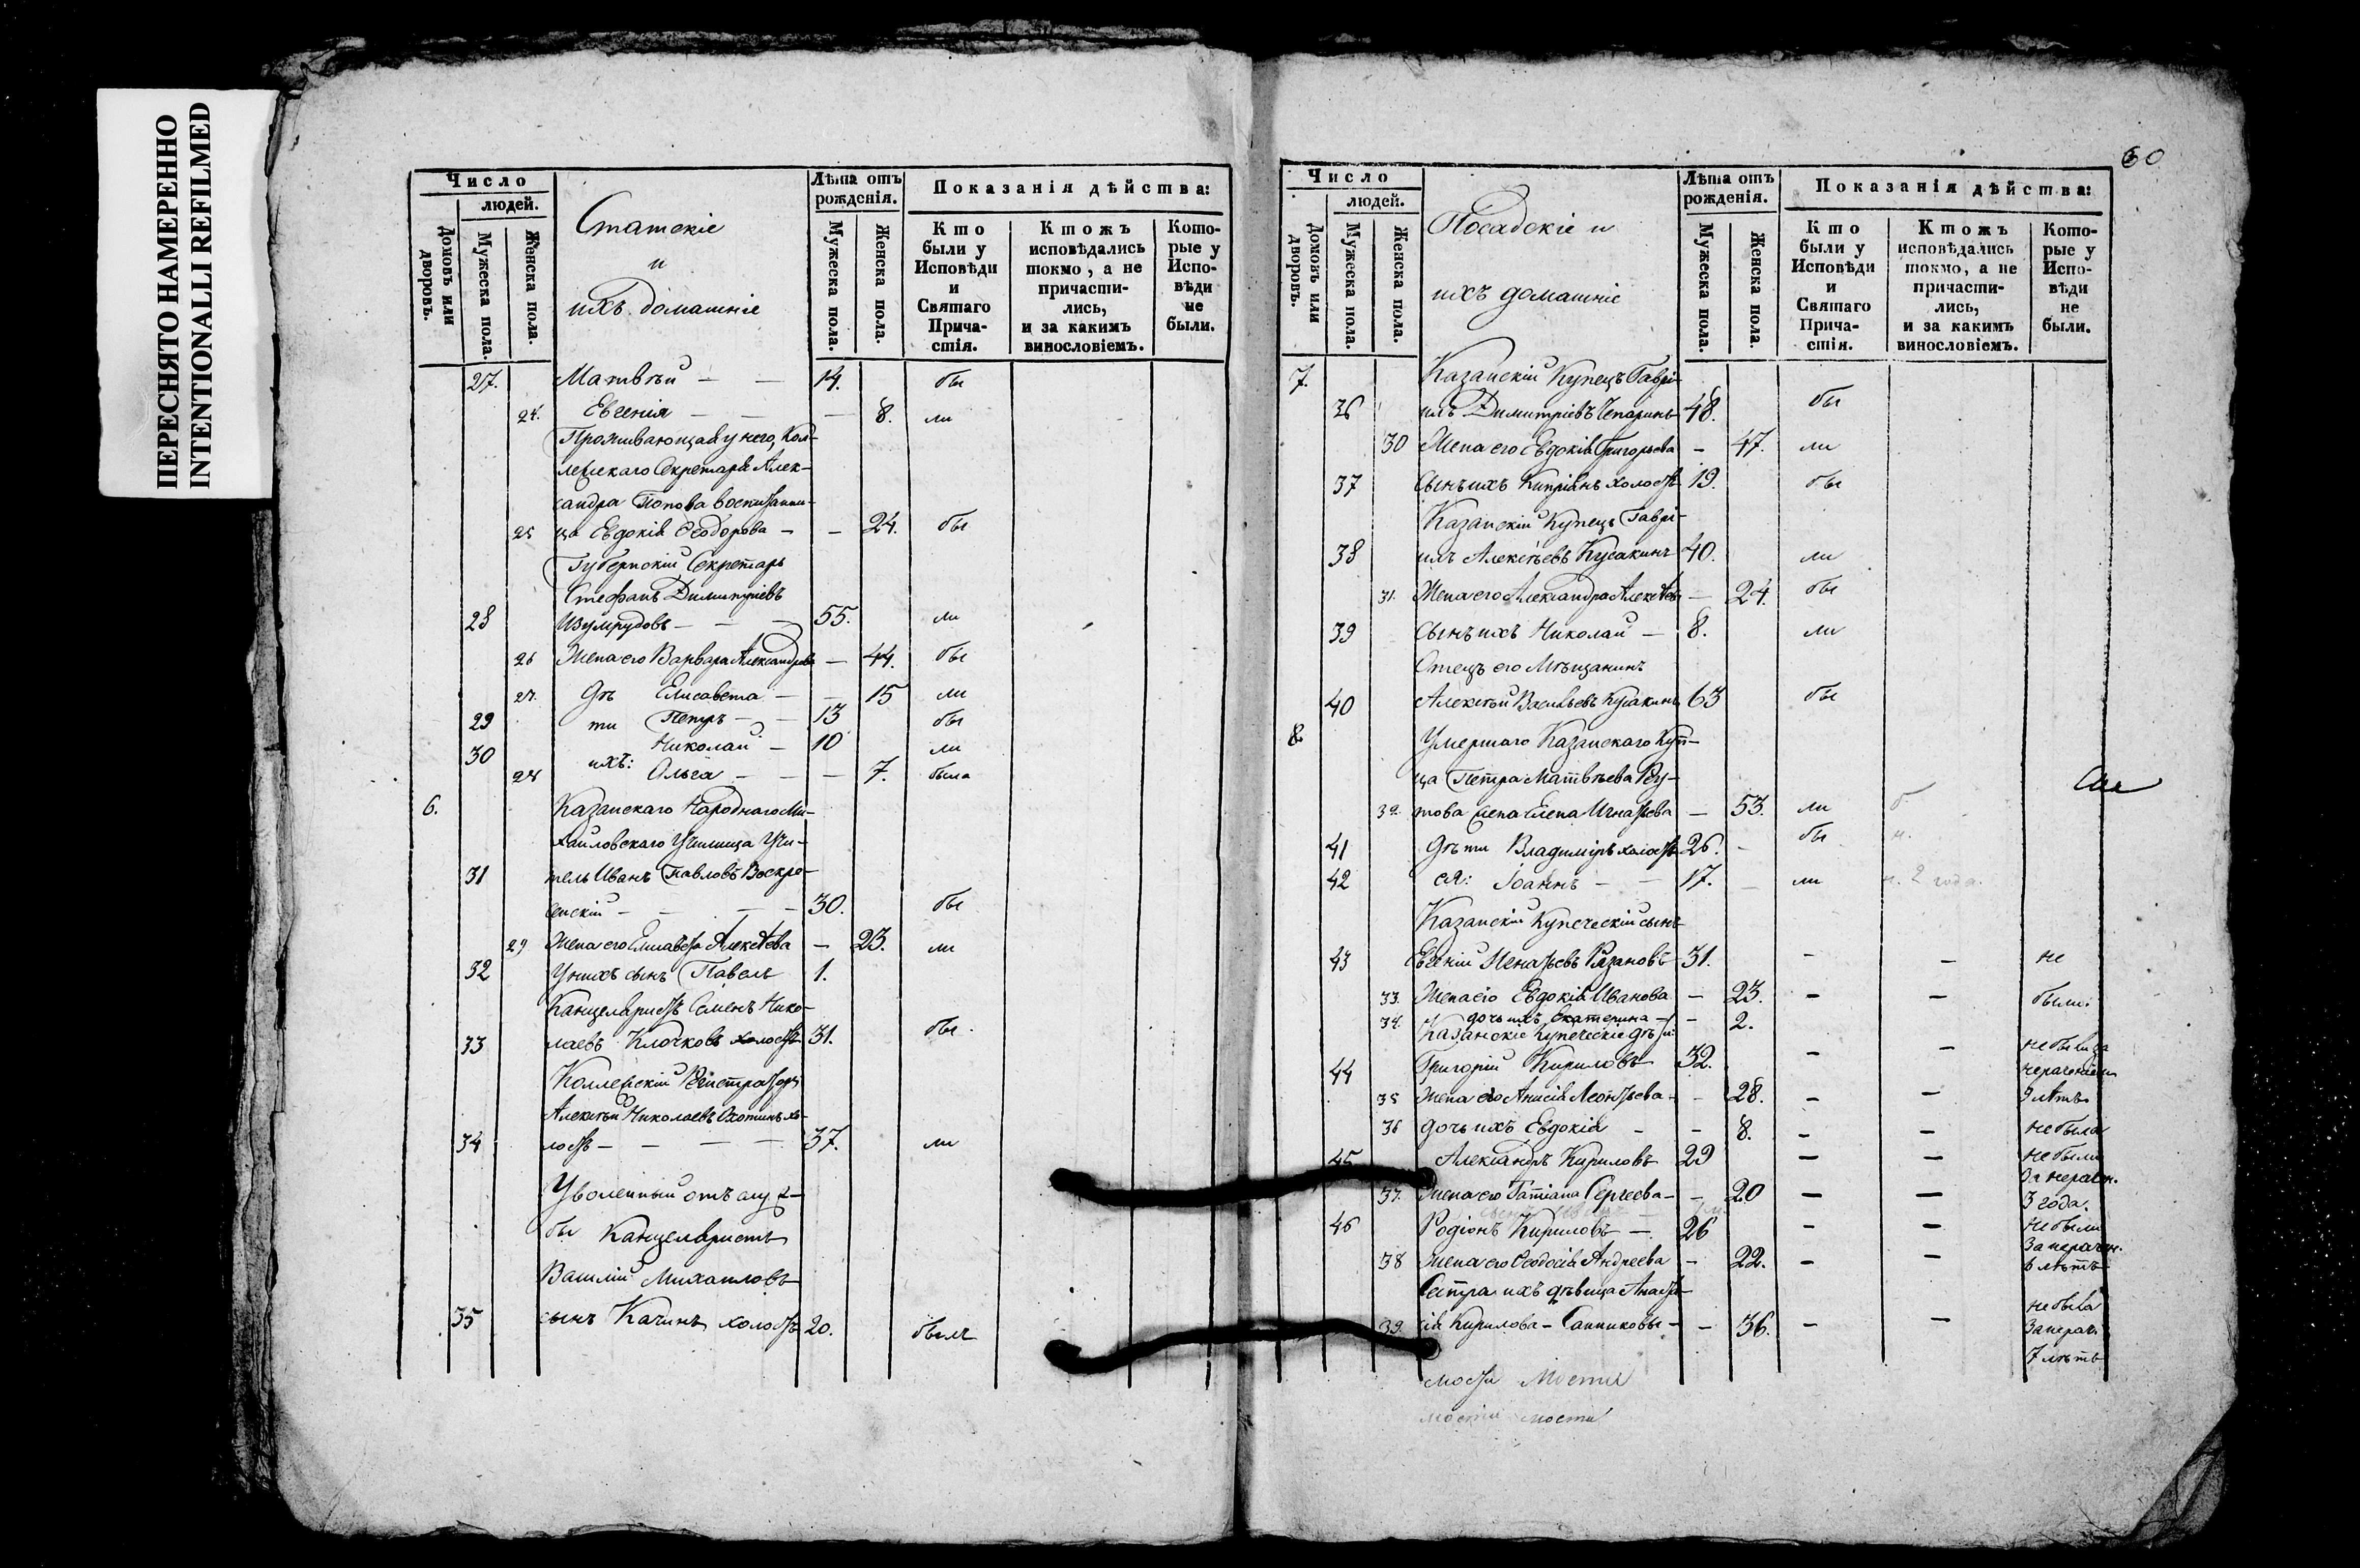 ПЕРЕСНЯТО НАМЕРЕННО
INTENTIONALLI REFILMED
Число
людей.
Домовъ или дворовъ.
Мужеска пола.
Женска пола.
Статскіе
и
ихъ домашніе
Лѣта отъ рожденія.
Мужеска пола.
Женска пола.
Показанія дѣйства:
Кто были у Исповѣди и Святаго Прича-стія.
Ктожъ исповѣдались токмо, а не причасти-лись, и за какимъ винословіемъ.
Кото-рые у Испо-вѣди не были.
27. Матвѣй — — 14. бы
24. Евгенія — — — 8. ли
Проживающая у него, Кол-
лежскаго Секретаря Алек-
сандра Попова воспитанни-
25 ца Евдокія Ѳеодорова — — 24. бы
Губернскій Секретарь
Стефанъ Димитріевъ
28 Изумрудовъ — — — 55. ли
26 Жена его Варвара Александрова — 44. бы
27. Дѣ Елисавета — — 15 ли
29 ти Петръ — — 13 бы
30 Николай — 10 ли
28 ихъ: Ольга — — — 7. была
6. Казанскаго Народнаго Ми-
хайловскаго Училища Учи-
31 тель Иванъ Павловъ Воскре-
сенскій — — — — 30. бы
29 Жена его Елисавета Алексѣева — 23. ли
32 У нихъ сынъ Павелъ 1.
Канцеляристъ Семенъ Нико-
33 лаевъ Клочковъ холостъ 31. бы.
Коллежскій Регистраторъ
Алексѣй Николаевъ Охотинъ хо-
34 лостъ — — — — 37. ли
Уволенный отъ служ-
бы Канцеляристъ
Василій Михайловъ
35 сынъ Качинъ холостъ 20. былъ
60
Число
людей.
Домовъ или дворовъ.
Мужеска пола.
Женска пола.
Посадскіе и
ихъ домашніе
Лѣта отъ рожденія.
Мужеска пола.
Женска пола.
Показанія дѣйства:
Кто были у Исповѣди и Святаго Прича-стія.
Ктожъ исповѣдались токмо, а не причасти-лись, и за какимъ винословіемъ.
Кото-рые у Испо-вѣди не были.
7. Казанскій Купецъ Гаврі-
36 илъ Димитріевъ Чепаринъ 48. бы
30 Жена его Евдокія Григорьева — 47. ли
37 Сынъ ихъ Кипріянъ холостъ 19. бы
Казанскій Купецъ Гаврі-
38 илъ Алексѣевъ Кусакинъ 40. ли
31. Жена его Александра Алексѣева — 24. бы
39 Сынъ ихъ Николай — 8. ли
Отецъ его Мѣщанинъ
40 Алексѣй Васильевъ Кусакинъ 63 бы
8. Умершаго Казанскаго Куп-
ца Петра Матвѣева Реу-
32. това жена Елена Игнатьева — 53. ли
41 Дѣти Владиміръ холостъ 26. — бы
42 ея: Іоаннъ — — 17. — ли 2 года.
Казанскій Купеческій сынъ
43 Евгеній Игнатьевъ Рязановъ 31. — — не
33. Жена его Евдокія Иванова — 23. — — были.
34. дочь ихъ Екатерина — — 2.
Казанскіе Купеческіе дѣти:
44 Григорій Кириловъ 32. — — не были за
нераченіем
35 Жена его Анисія Леонтьева — — 28. — — 9 лѣтъ
36 дочь ихъ Евдокія — — 8. — — не была
45 Александръ Кириловъ 29 — — не были
За нерачен.
37. Жена его Татіана Сергеева — — 20 — — 3 года.
46 Родіонъ Кириловъ — 26 — — не были
За нерачен.
38 Жена его Ѳеодосія Андреева — 22. — — 6 лѣтъ
Сестра ихъ дѣвица Анаста-
не была
39. сія Кирилова — Санниковы — — 36. — — За нерач.
7 лѣтъ
мости мости
мости мости